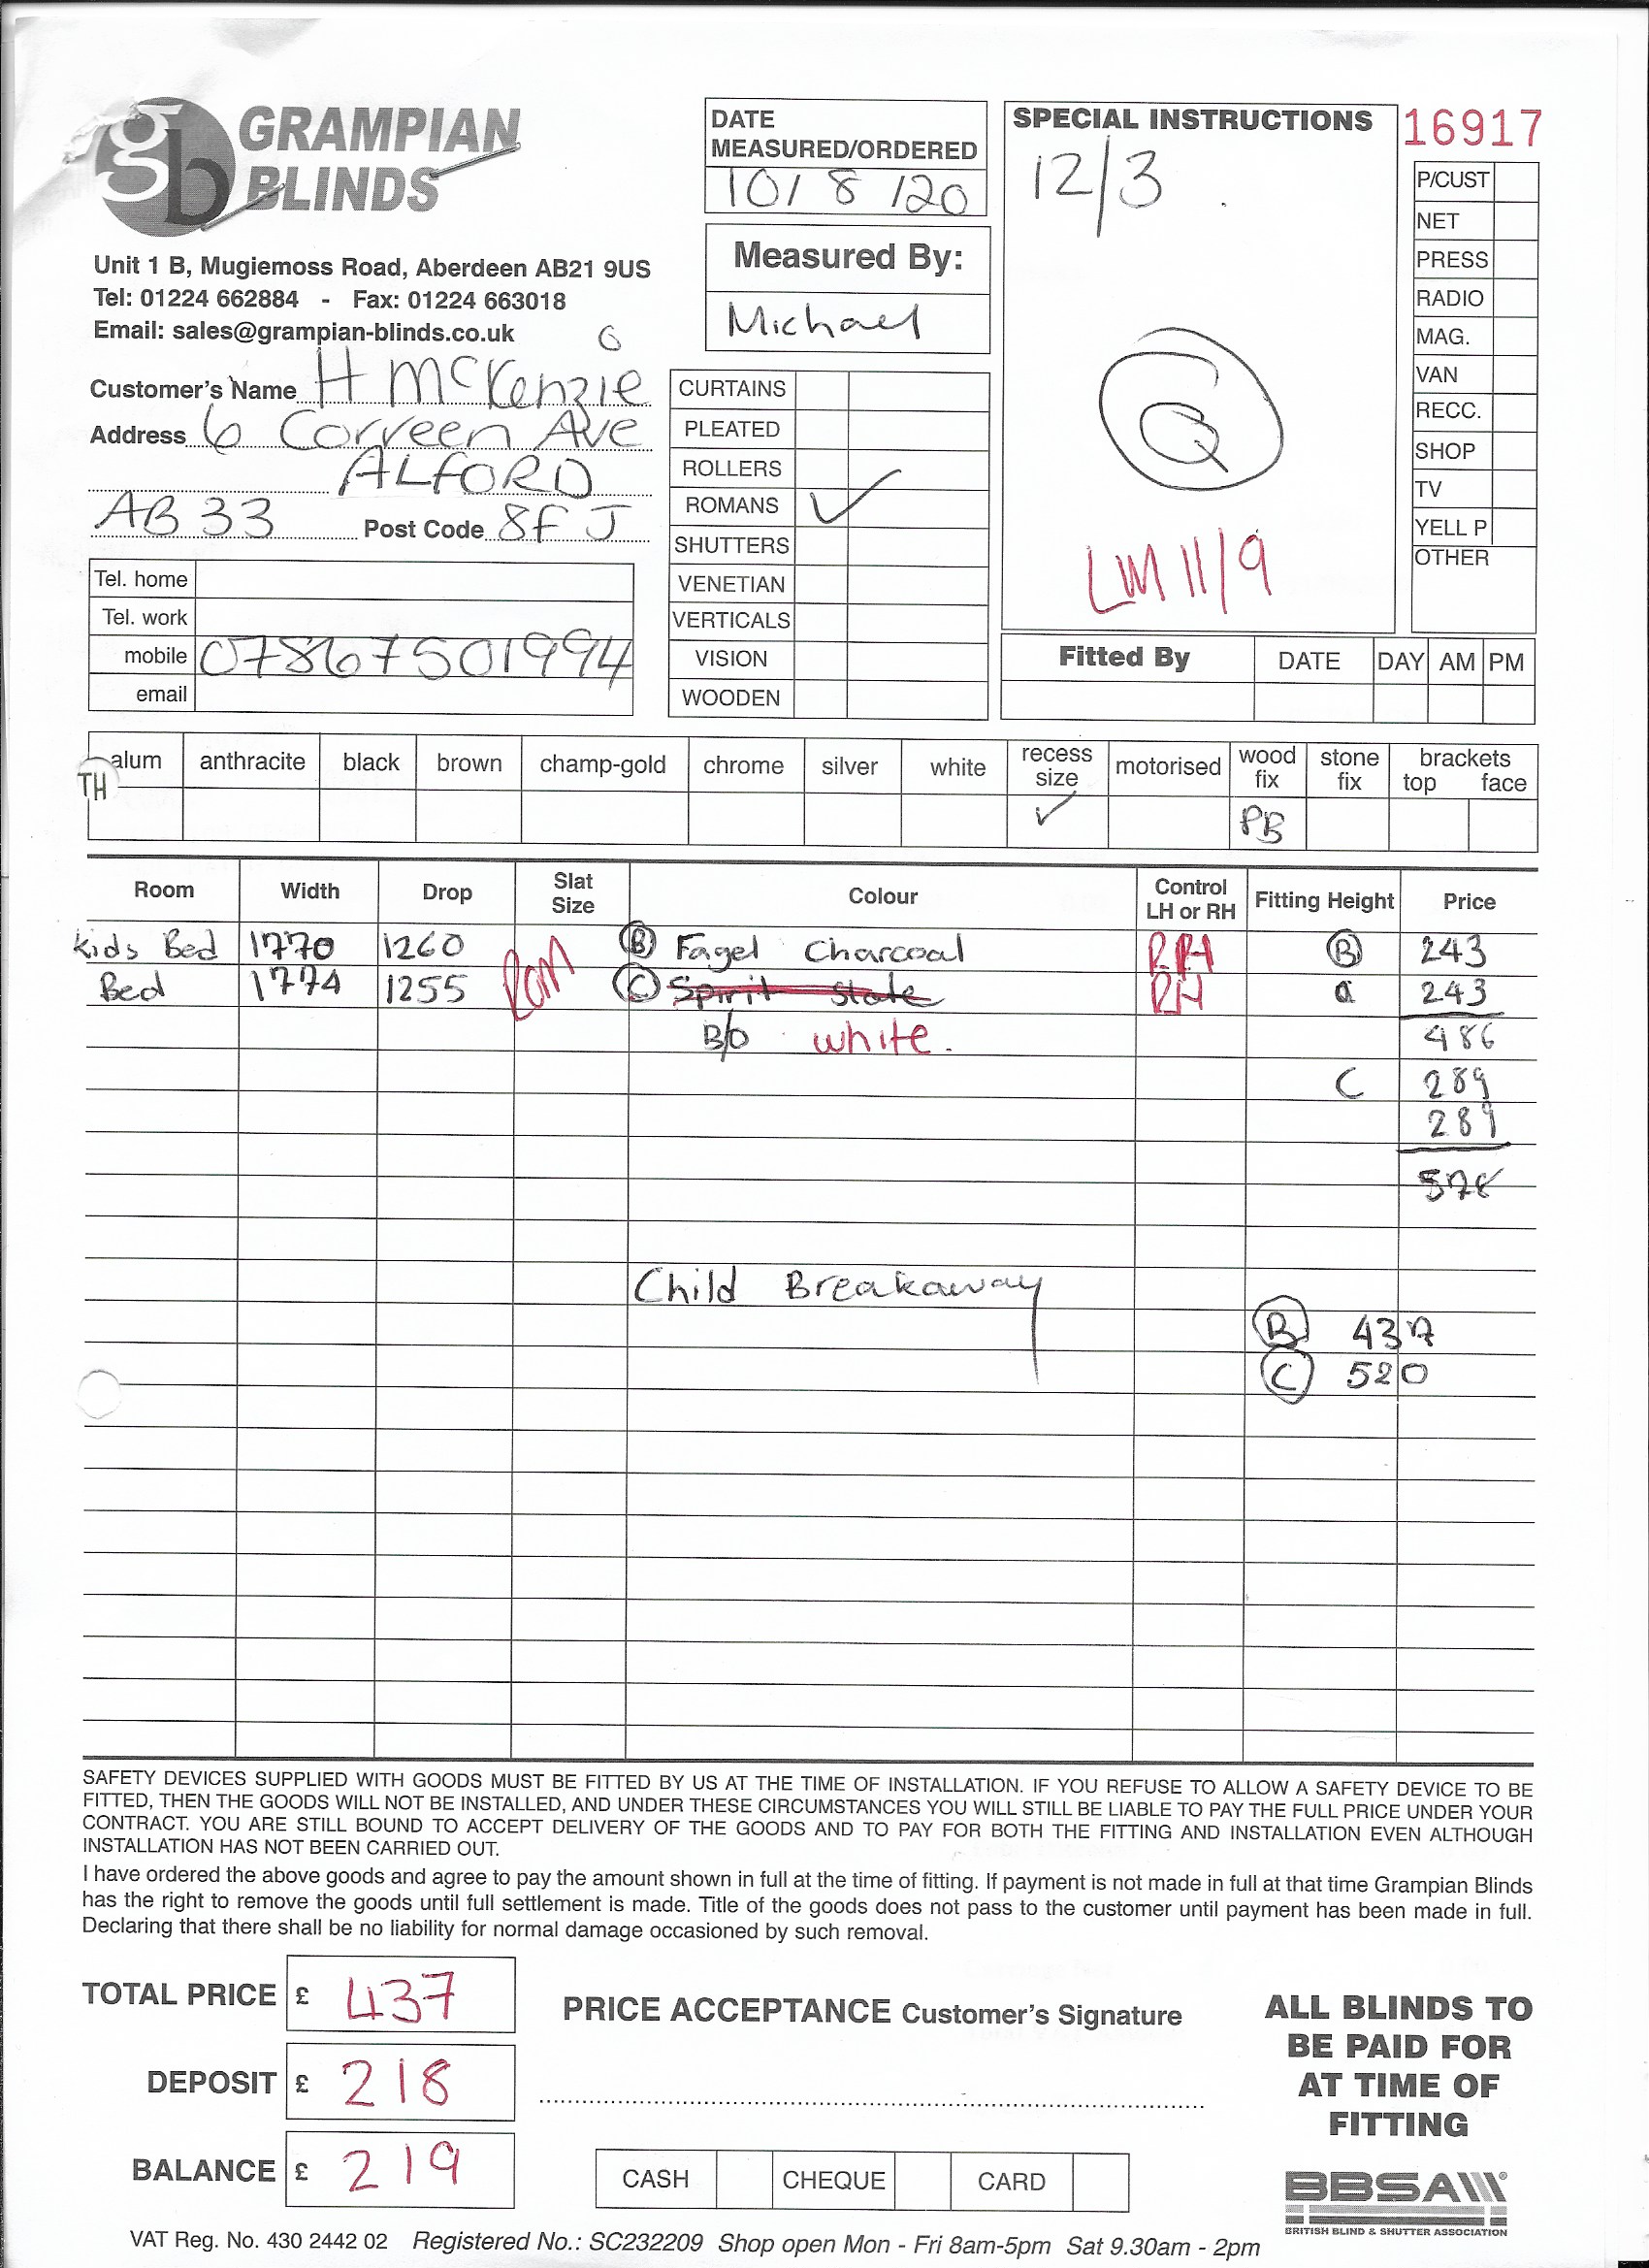 GRAMPIAN
BLINDS
Unit 1 B, Mugiemoss Road, Aberdeen AB21 9US
Tel: 01224 662884 - Fax: 01224 663018
Email: sales@grampian-blinds.co.uk
Customer's Name H McKenzie
Address 6 Correen Ave
ALFORD
AB33 Post Code 8FJ
Tel. home
Tel. work
mobile 07867501994
email
DATE
MEASURED/ORDERED
10/8/20
Measured By:
Michael
CURTAINS
PLEATED
ROLLERS
ROMANS ✓
SHUTTERS
VENETIAN
VERTICALS
VISION
WOODEN
SPECIAL INSTRUCTIONS
12/3
Q
LM 11/9
16917
P/CUST
NET
PRESS
RADIO
MAG.
VAN
RECC.
SHOP
TV
YELL P
OTHER
Fitted By DATE DAY AM PM
alum anthracite black brown champ-gold chrome silver white recess size motorised wood fix stone fix brackets top face
TH ✓ PB
Room Width Drop Slat Size Colour Control LH or RH Fitting Height Price
Kids Bed 1770 1260 ROM B Fagel Charcoal RH B 243
Bed 1774 1255 C Spirit Slate RH 243
B/O white. 486
C 289
289
578
Child Breakaway
B 437
C 520
SAFETY DEVICES SUPPLIED WITH GOODS MUST BE FITTED BY US AT THE TIME OF INSTALLATION. IF YOU REFUSE TO ALLOW A SAFETY DEVICE TO BE
FITTED, THEN THE GOODS WILL NOT BE INSTALLED, AND UNDER THESE CIRCUMSTANCES YOU WILL STILL BE LIABLE TO PAY THE FULL PRICE UNDER YOUR
CONTRACT. YOU ARE STILL BOUND TO ACCEPT DELIVERY OF THE GOODS AND TO PAY FOR BOTH THE FITTING AND INSTALLATION EVEN ALTHOUGH
INSTALLATION HAS NOT BEEN CARRIED OUT.
I have ordered the above goods and agree to pay the amount shown in full at the time of fitting. If payment is not made in full at that time Grampian Blinds
has the right to remove the goods until full settlement is made. Title of the goods does not pass to the customer until payment has been made in full.
Declaring that there shall be no liability for normal damage occasioned by such removal.
TOTAL PRICE £ 437
DEPOSIT £ 218
BALANCE £ 219
PRICE ACCEPTANCE Customer's Signature
CASH CHEQUE CARD
ALL BLINDS TO
BE PAID FOR
AT TIME OF
FITTING
BBSA
BRITISH BLIND & SHUTTER ASSOCIATION
VAT Reg. No. 430 2442 02 Registered No.: SC232209 Shop open Mon - Fri 8am-5pm Sat 9.30am - 2pm